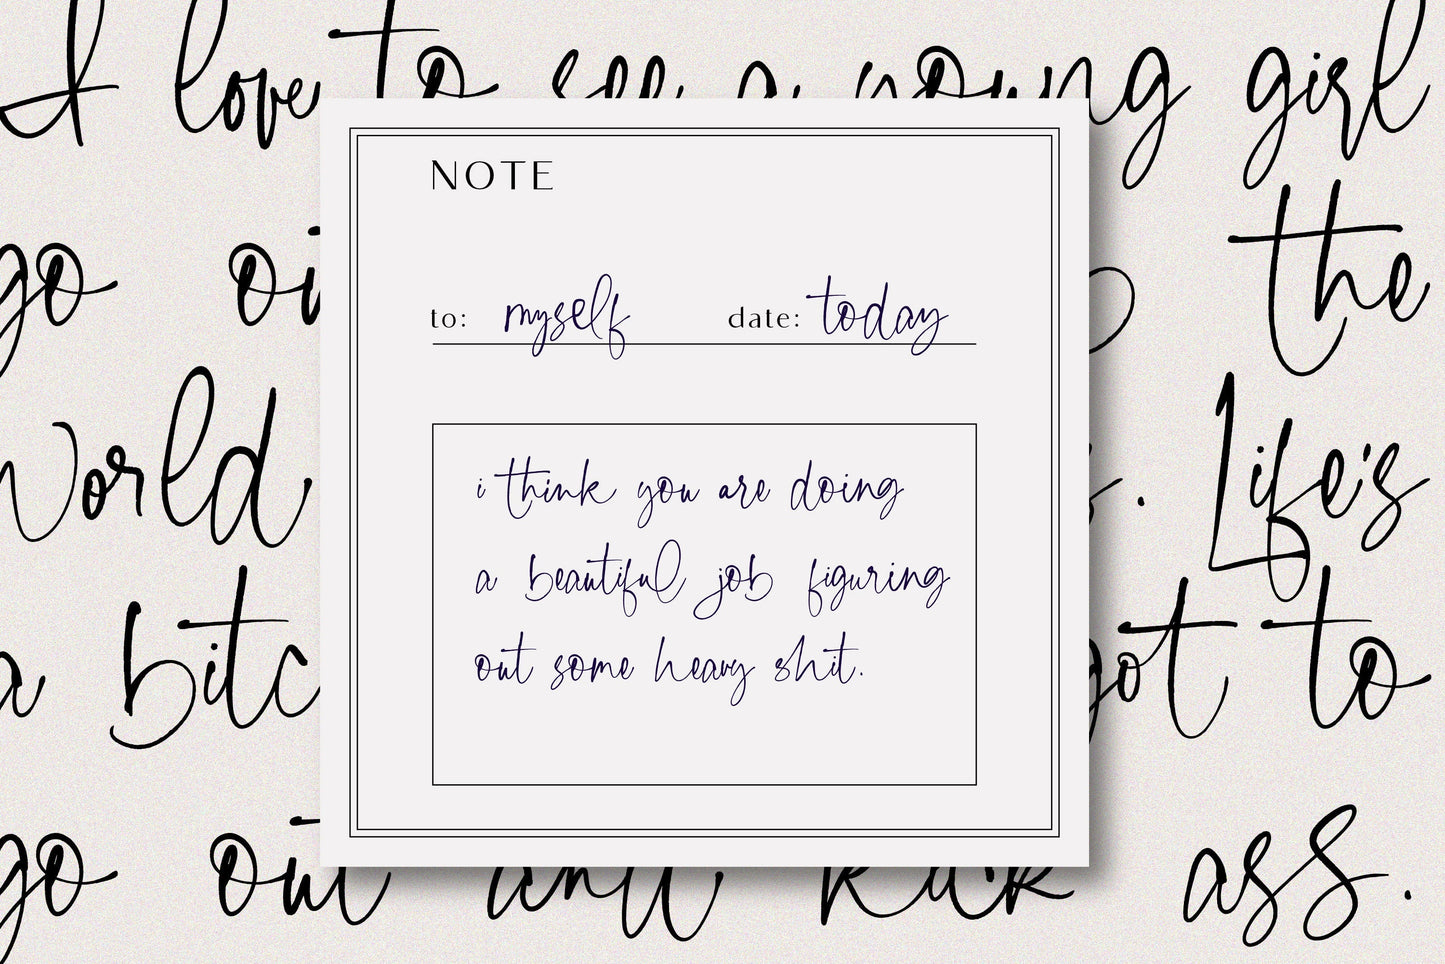 I love to see a young girl
go the
World,
Life's
a got to
go out and kick ass.
NOTE
to: myself date: today
i think you are doing
a beautiful job figuring
out some heavy shit.